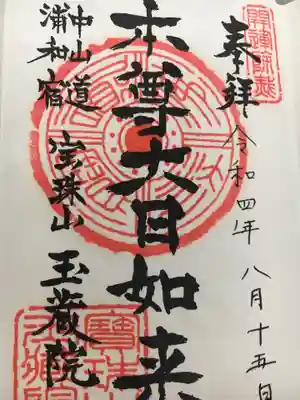 奉拝
令和四年八月十五日
本尊大日如来
中山道
浦和宿
宝珠山
玉蔵院